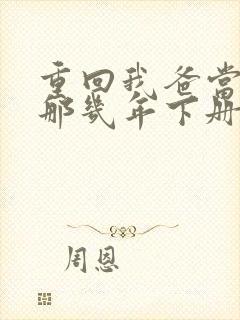 重回我爸当
那几年下册
周恩